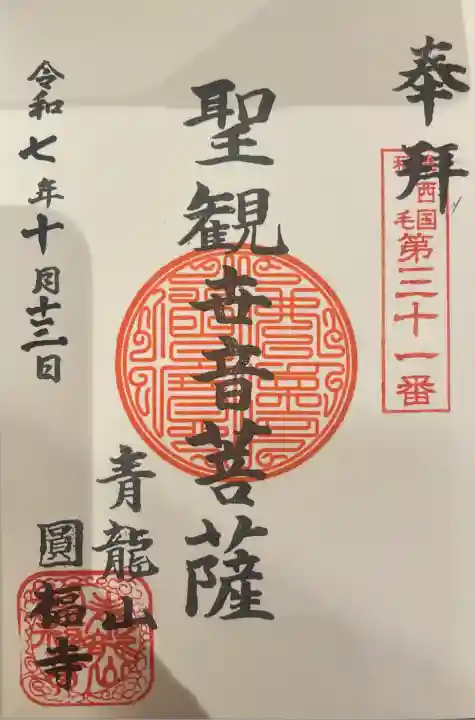 奉拝
西国
毛
第三十一番
聖観世音菩薩
令和七年十月十三日
青龍山
圓福寺